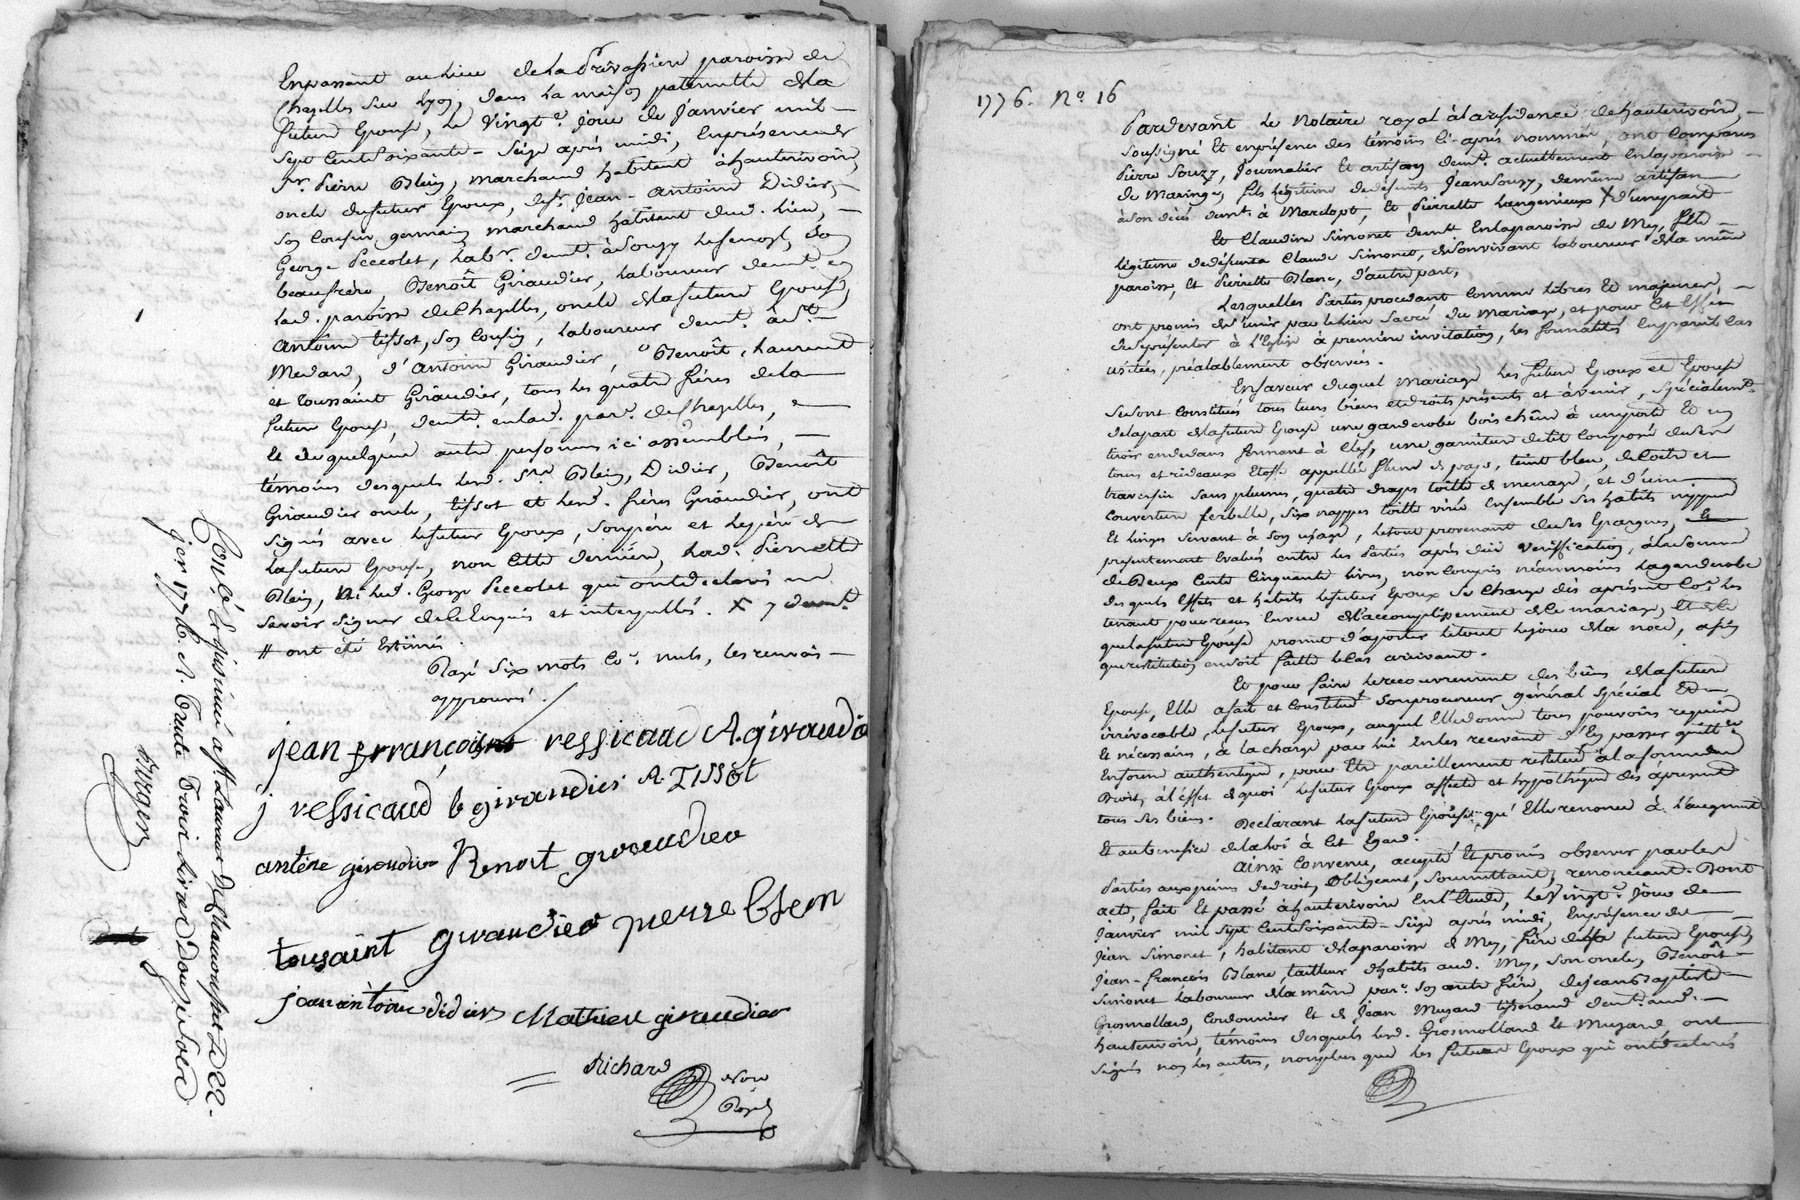 Enpassant au lieu de la Trévassien paroisse de
Chazelles sur Lyon, dans la maison paternelle de la
future Epouse, le vingt.e jour de Janvier mil
Sept Cent Soixante-Seize après midi, En présence du
Sr. Pierre Blein, marchand habitant à hauterivoire,
oncle du futur Epoux, de Sr. Jean-Antoine Didier,
Son Cousin germain marchand habitant dud. lieu,
George Peccolet, Lab.r demt. à
beaufrère Benoît Giraudier, laboureur demt. en
lad. paroisse de Chazelles, oncle de la future Epouse,
Antoine tissot, Son Cousin, laboureur demt. à St.
Medard, d'antoine Giraudier, Benoît, Laurent
et Toussaint Giraudier, tous les quatre frères de la
future Epouse, demts. en lad. par.e de Chazelles,
Et de quelques autres personnes ici assemblées,
témoins desquels lesd. Srs. Blein, Didier, Benoît
Giraudier oncle, tissot et lesd. frères Giraudier, ont
Signés avec le futur Epoux, Son père et le père de
la future Epouse, non Cette dernière, lad. Pierrette
Blein, Ni led. George Peccolet qui ont déclarés ne
Savoir Signer de Ce Enquis et interpellés. X 7 demt.
# ont été Estimés
Rayé Six mots Co.e nuls, les renvois
approuvés.
jean françois ressicaud A. giraudie
j ressicaud b giraudier A. TISSOT
antoine giraudier Benoit giraudier
tousaint giraudier pierre blein
jean antoine didier Mathieu giraudier
Richard
Nore
Royal
Con.lé Et insinué à St. Laurent De Chamousset Le 22.
jer 1776 R. Trente Trois Livres Douze Sols
Burger
1776. No. 16
Pardevant Le Notaire royal à la résidence de hauterivoire,
Soussigné Et en présence des témoins Ci-après nommés, ont Comparus
Pierre Souzy, Journalier Et artisan demt. actuellement en la paroisse
de Maringe, fils légitime de défunts Jean Souzy, de même artisan
à son décès demt. à Marclopt, Et Pierrette Langenieux X d'une part
Et Claudine Simonet demt. En la paroisse de Mey, fille
légitime de défunts Claude Simonet, de son vivant laboureur de la même
paroisse, Et Pierrette Blanc, d'autre part,
Lesquelles Parties procédant Comme libres Et majeures,
ont promis de s'unir par le lien Sacré du Mariage, et pour Cet Effet
de se présenter à l'Eglise à première invitation, les formalités En pareil Cas
usitées, préalablement observées.
En faveur duquel Mariage les futurs Epoux et Epouse
Se sont Constitués tous leurs biens et droits présents et à venir, Spécialemt.
de la part de la future Epouse une garderobe bois chêne à une porte Et un
tiroir en dedans fermant à Clef, une garniture de lit Composée de Ses
tours et rideaux Etoffe appellée flune de pays, teint bleu, de Coëtre et
traversin Sans plumes, quatre draps toille de menage, et d'une
Couverture ferbelle, Six nappes toille virée Ensemble Ses habits nippes
Et linges Servant à Son usage, le tout provenant de Ses Epargnes, Et
présentement Evalués entre les Parties après due vérification, à la Somme
de Deux Cents Cinquante livres, non Compris néanmoins la garderobe
desquels Effets et habits le futur Epoux Se Charge dès àprésent Co.e les
tenant pour reçus En vue de l'accomplissement de Ce mariage, Et de Ce
que la future Epouse, promet d'apporter le tout le jour de la noce, afin
que restitution en soit faitte le Cas arrivant.
Et pour faire le recouvrement des biens de la future
Epouse, Elle a fait et Constitué Son procureur général Spécial Et
irrévocable, le futur Epoux, auquel Elle donne tous pouvoirs requis
Et nécessaires, à la charge par lui En les recevant d'En passer quittce.
En forme authentique, pour Etre pareillement restitué à la forme du
Droit, à l'effet de quoi le futur Epoux affecte et hypothèque dès àprésent
tous Ses biens.
Déclarant la future Epouse, qu'Elle renonce à l'augment
Et au bénéfice de la loi à Cet Egard.
Ainsi Convenu, accepté Et promis observer par les
Parties aux peines de droit, obligeant, Soumettant, renonceant. Dont
acte, fait Et passé à hauterivoire En l'Etude, Le vingt.e Jour de
Janvier mil Sept Cent Soixante-Seize après midi, En présence de
Jean Simonet, habitant de la paroisse de Mey, frère de la future Epouse,
Jean-François Blanc tailleur d'habits aud. Mey, Son oncle, Benoît
Simonet laboureur de la même par.e Son autre frère, de Jean Baptiste
Grosmolard, Cordonnier Et de Jean Muzard tisserand demts. aud.
hauterivoire, témoins desquels lesd. Grosmollard Et Muzard, ont
Signés non les autres, non plus que les futurs Epoux qui ont déclarés